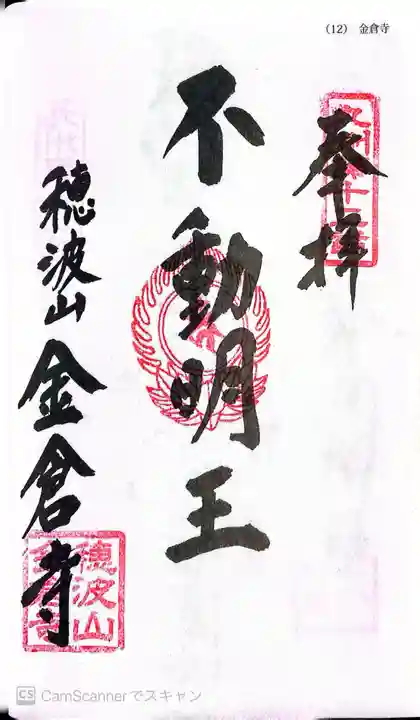 (12) 金倉寺
奉拝
不動明王
穂波山 金倉寺
穂波山
金倉寺
CS CamScannerでスキャン